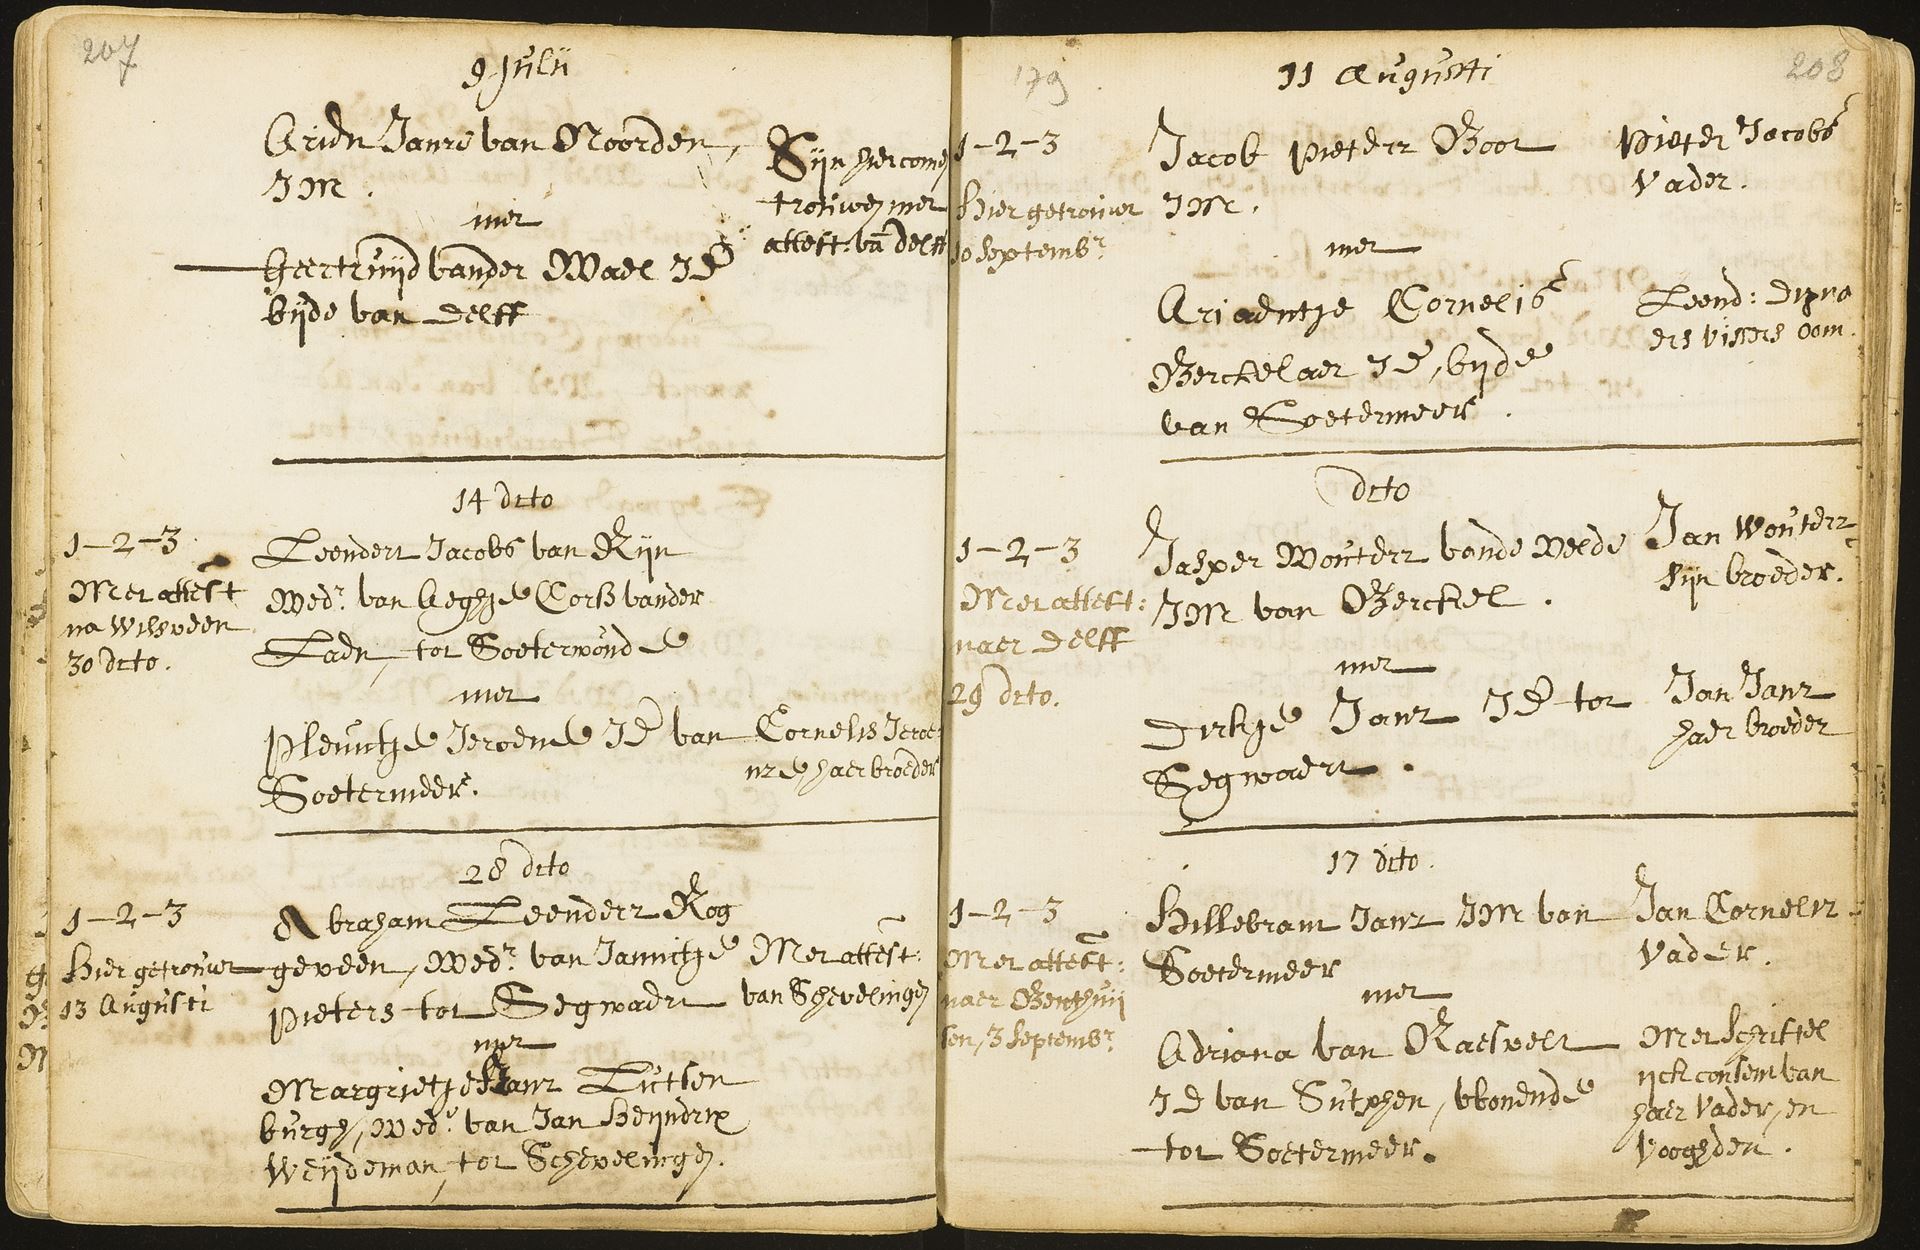 207
9 Julii
Arien Jansz van Noorden,
JM.
met
Geertruijd vander Wael JD
bijde van Delff
Sijn hier comen
trouwen met
attest: van delft
14 dito
1-2-3
Met attest
na Wilsveen
30 dito.
Leendert Jacobs van Rijn
Wedr. van Aeghje Corss vander
Laen, tot Soeterwoude
met
Pleuntje Jeroens JD van
Soetermeer.
Cornelis Jeroe:
nze haer broeder
28 dito
1-2-3
Hier getrouwt
13 Augusti
Abraham Leendertz Rog
geveen, Wedr. van Jannitje
Pieters tot Segwaert
met
Margrietje Jans Lutsen
burgh, Wede. van Jan Heijndrix
Weijdeman, tot Schevelingen.
Met attest:
van Schevelingen
179
208
11 Augusti
1-2-3
Hier getrouwt
10 Septembr.
Jacob Pietersz Boot
JM.
met
Ariaentje Cornelis
Berckelaer JD, bijde
van Soetermeer.
Pieter Jacobs
Vader.
Leend:
ders Vissers Oom.
dito
1-2-3
Met attest:
naer Delff
29 dito.
Jasper Woutersz vande Velde
JM van Berckel.
met
Dirkje Jans JD tot
Segwaert.
Jan Wouters
sijn broeder.
Jan Jansz
haer broeder
17 dito.
1-2-3
Met attest:
naer Benthuij
sen, 3 Septembr.
Hillebrant Jansz JM van
Soetermeer
met
Adriana van Raesvelt
JD van Sutphen, wonende
tot Soetermeer.
Jan Cornelisz
Vader.
Met schriftel
ijck consent van
haer Vader, en
Vooghden.